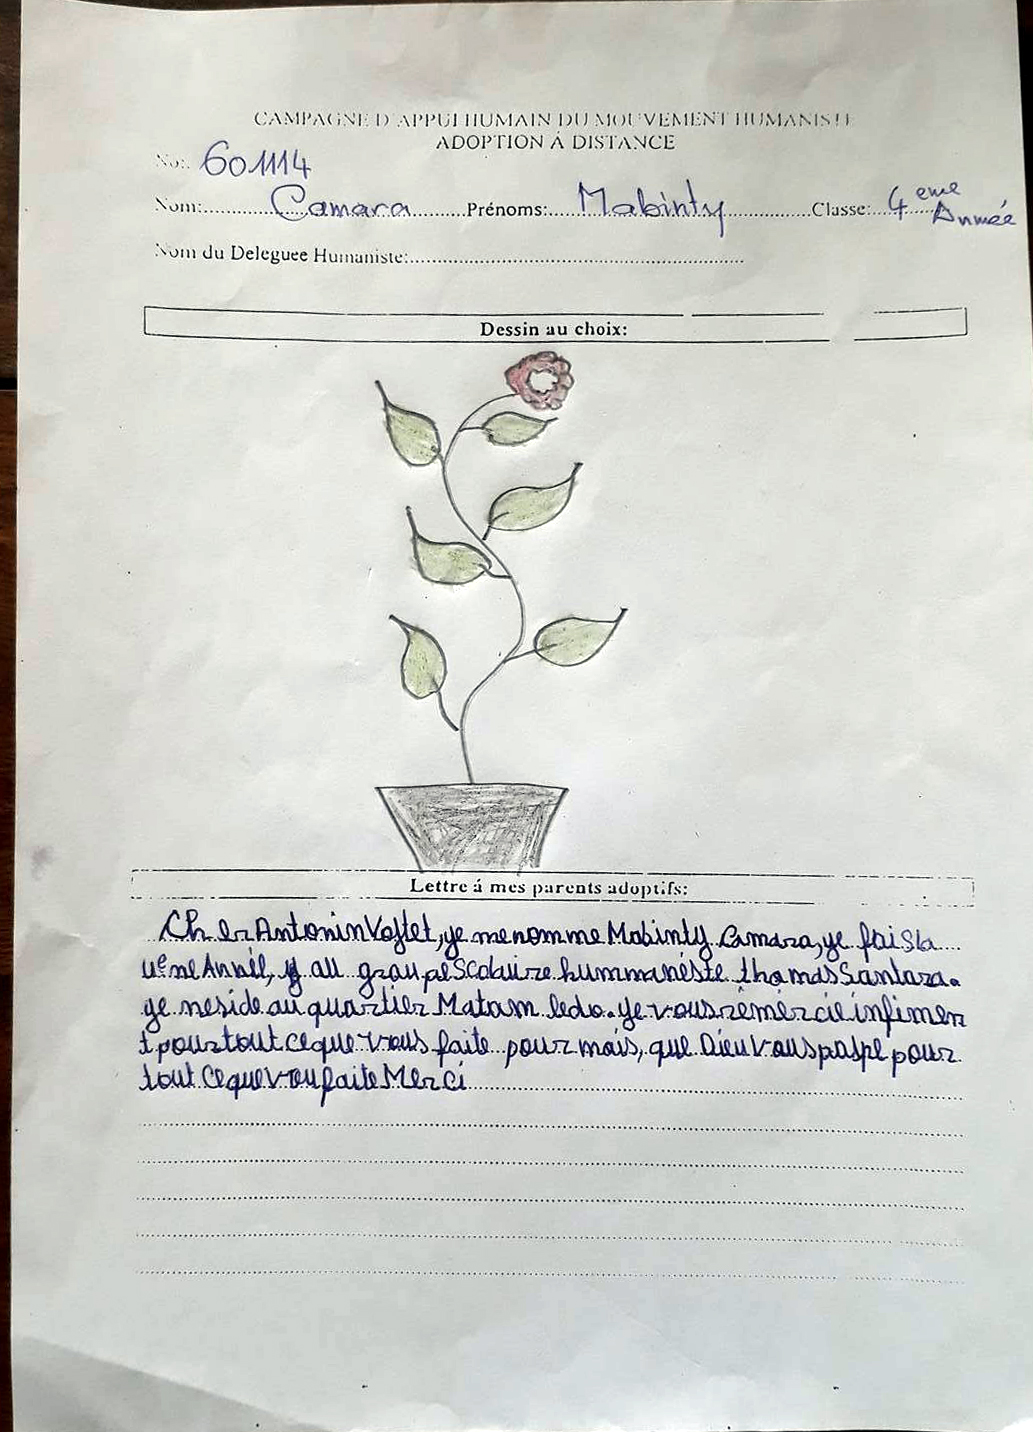 CAMPAGNE D'APPUI HUMAIN DU MOUVEMENT HUMANISTE
ADOPTION Á DISTANCE
No:. 601114
Nom:........Camara........Prénoms:....Mabinty............Classe:...4 eme Année
Nom du Deleguee Humaniste:..............................................................
Dessin au choix:
Lettre á mes parents adoptifs:
Cher Antonin Vostet, ye me nomme Mabinty Camara, ye fais la
4eme Année, au graupe Scolaire hummanéste thomas Santara.
ye neside au quartier Matam ledo. ye vous rémércié infimen
t pour tout ce que vous faite pour mais, que Dieu vous paspe pour
tout ce que vou faite Merci